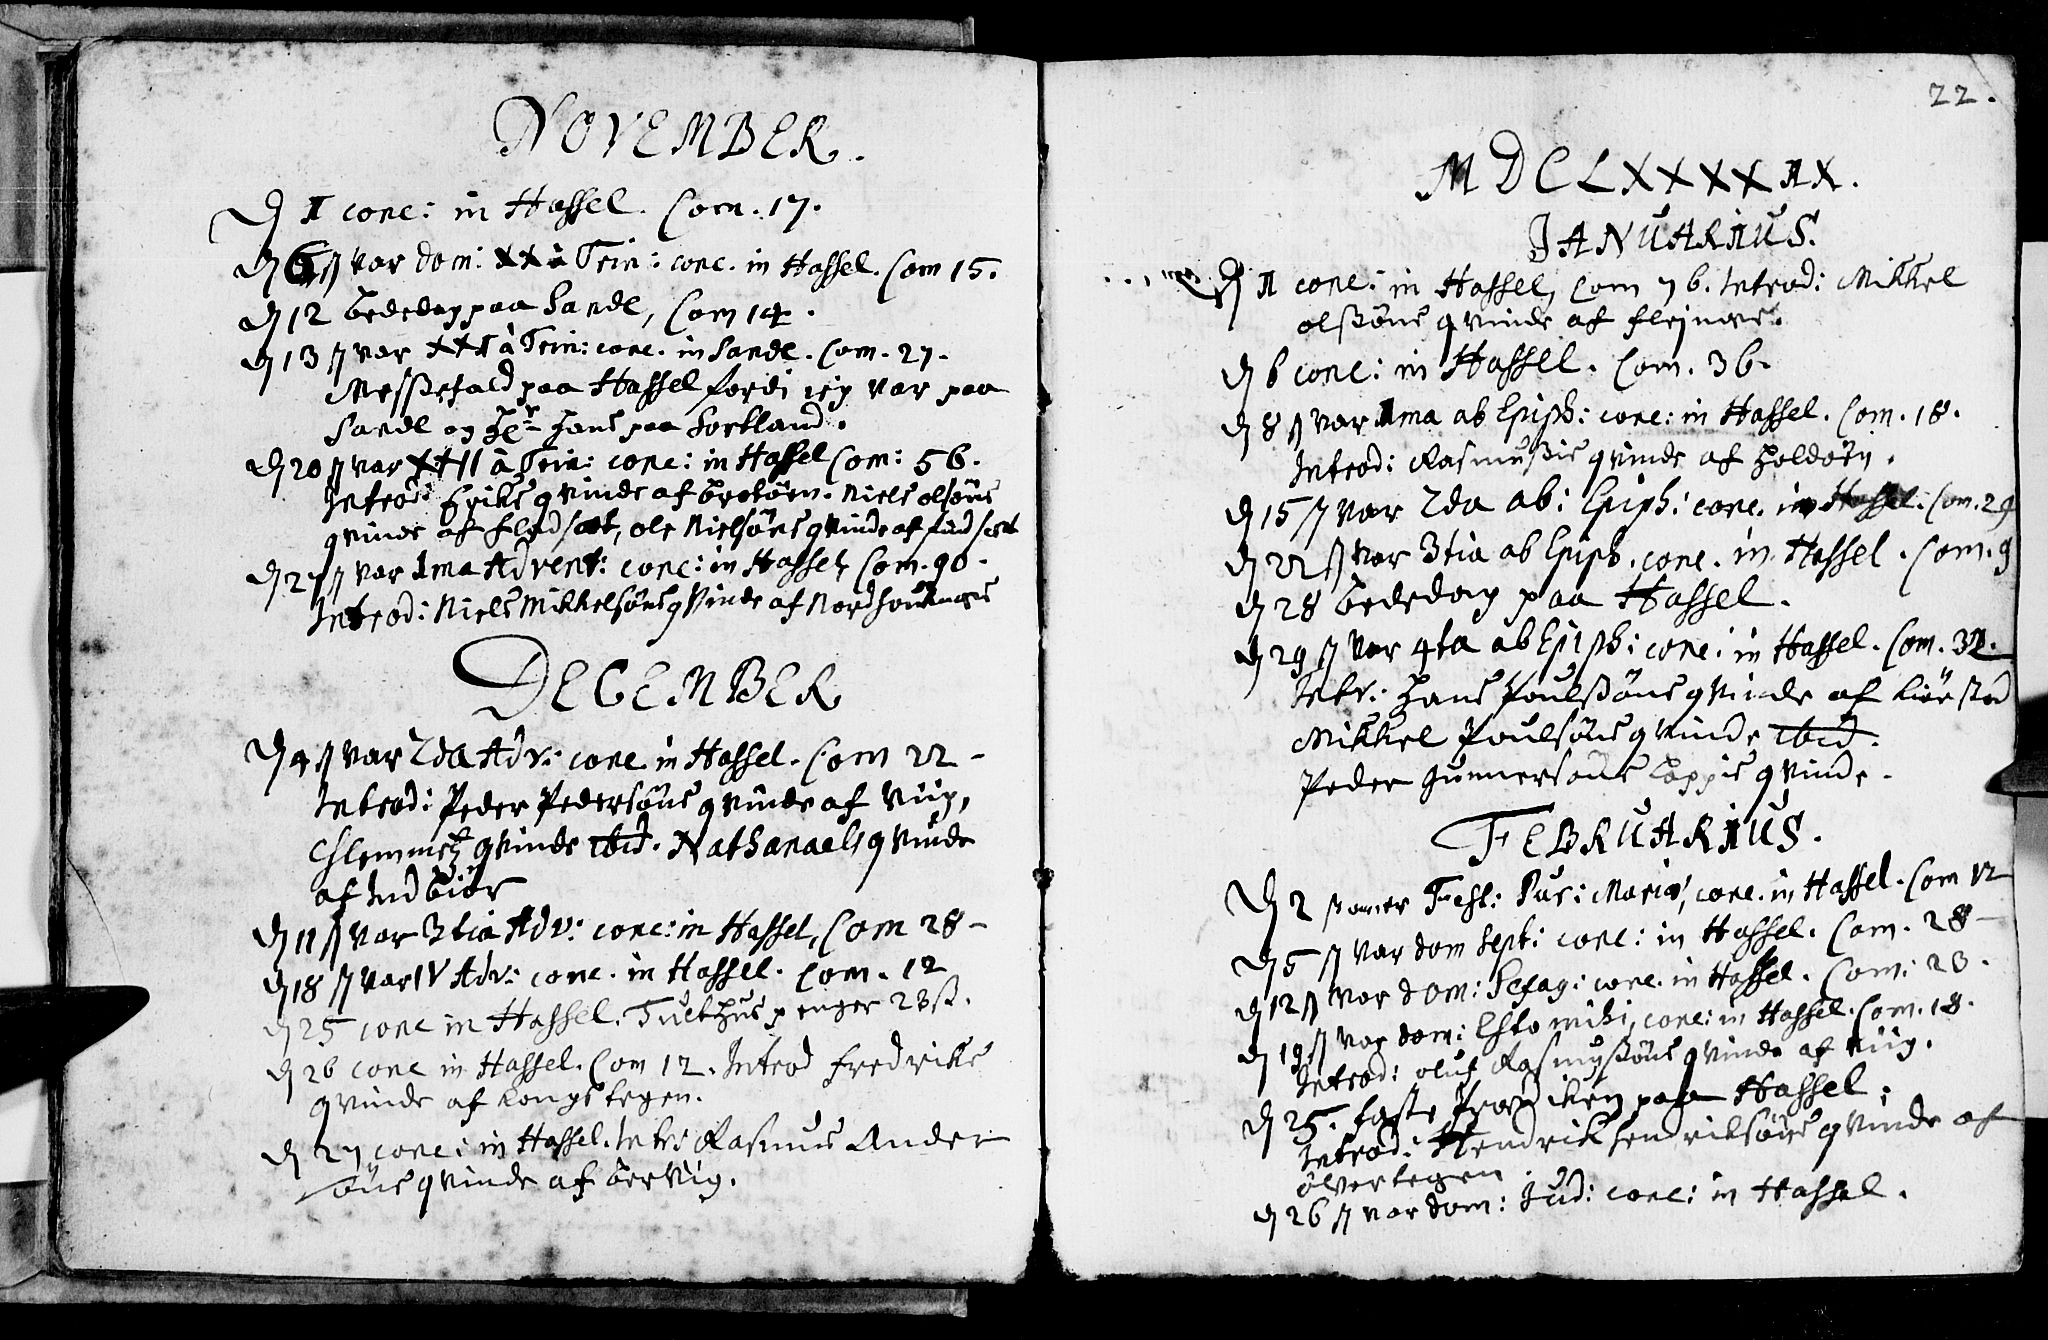 NOVEMBER.
D 1 conc: in Hassel. Com. 17.
D 6 s var dom: XX à Trin: conc. in Hassel. Com 15.
D 12 bededag paa Sandl, Com 14.
D 13 s var XXI à Trin: conc. in Sandl. Com. 27.
Messefald paa Hassel fordi ieg var paa
Sandl og Hr Hans paa Sortland.
D 20 s var XXII à Trin: conc: in Hassel Com: 56.
Introd: Eriks qvinde af Niels olsøns
qvinde af ole Nielsøns qvinde af
D 27 s var 1ma Advent: conc: in Hassel, Com. 90.
Introd: Niels Mikkelsøns qvinde af
DECEMBER
D 4 s var 2da Adv: conc in Hassel. Com 22 -
Introd: Peder Pedersøns qvinde af Viig,
qvinde ibid. Nathanaels qvinde
af Indbiør
D 11 s var 3tia Adv: conc: in Hassel, Com 28 -
D 18 s var IV Adv: conc. in Hassel. Com. 12
D 25 conc in Hassel. Tuckthus penger 23 ß.
D 26 conc in Hassel. Com 12. Introd Fredriks
qvinde af Kongstegen.
D 27 conc: in Hassel. Intr: Rasmus Ander
søns qvinde af
22.
MDCLXXXXIX.
JANUARIUS.
D 1 conc: in Hassel, Com 76. Introd: Mikkel
olssøns qvinde af
D 6 conc: in Hassel. Com. 36.
D 8 s var 1ma ab Epiph: conc: in Hassel. Com. 18.
Introd: qvinde af
D 15 s var 2da ab: Epiph: conc. in Hassel. Com. 29
D 22 s var 3tia ab Epiph. conc. in Hassel. Com. 9
D 28 bededag paa Hassel.
D 29 s var 4ta ab Epiph: conc: in Hassel. Com.
Intr: Hans Poulssøns qvinde af
Mikkel Poulsøns qvinde ibid.
Peder Gunnersøns qvinde.
FEBRUARIUS.
D 2 Fest: Pur: Mariæ, conc. in Hassel. Com 12
D 5 s var dom Sept: conc: in Hassel. Com. 28 -
D 12 s var dom: Sexag: conc. in Hassel. Com: 23.
D 19 s var dom: Esto mihi, conc: in Hassel. Com. 18.
Introd: oluf Rasmussøns qvinde af Viig.
D 25. faste Prædiken paa Hassel;
Introd: Hendrik Hendriksøns qvinde af
ølvertegen
D 26 s var dom: Jud: conc: in Hassel.